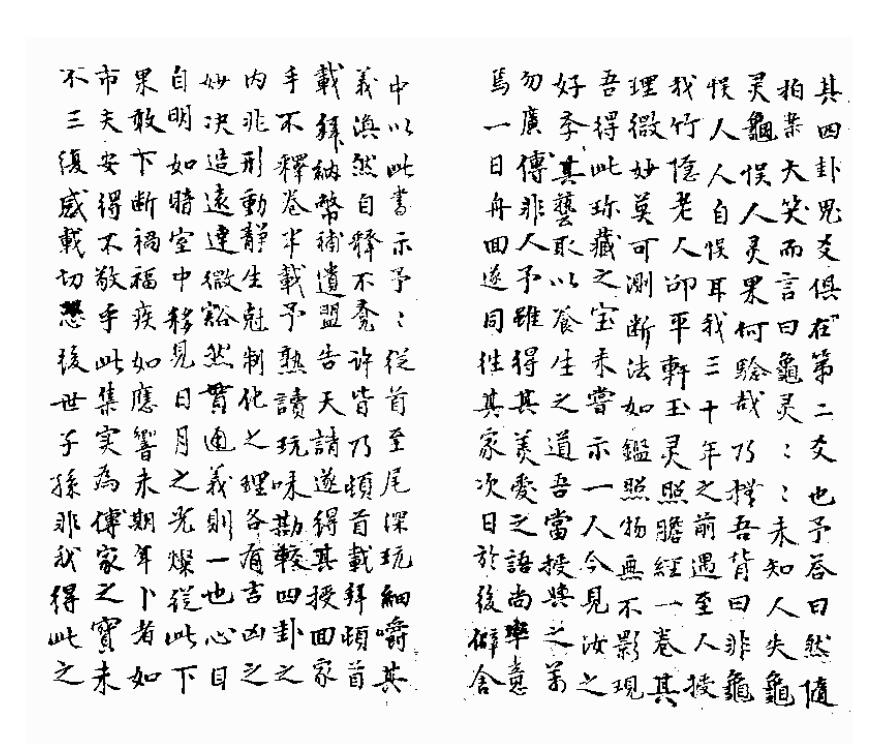 其四卦兄爻俱在第二爻也予答曰然隨
拍案大笑而言曰龜灵〻〻未知人失龜
灵龜悮人灵果何驗哉乃撫吾背曰非龜
悮人人自悮耳我三十年之前遇至人授
我竹隐老人卬平軒玉灵照膽經一卷其
理微妙莫可測断法如鑑照物無不影現
吾得此珎藏之宝未嘗示一人今見汝之
好季其藝取以养生之道吾當授與之萬
勿廣傳非人予雖得其美愛之語尚率意
焉一日舟回遂同徃其家次日於後僻舎
中以此書示予〻從首至尾深玩細嚼其
義渙然自釋不覔许皆乃頓首載拜頓首
載拜納幣補遺盟告天請遂得其授回家
手不釋卷半載予熟讀玩味勘較四卦之
内非形動靜生尅制化之理各有吉凶之
妙决造遠達微豁然貫通義則一也心目
自明如暗室中移見日月之光燦從此下
果敢下断禍福疾如應響未期年卜者如
市夫安得不敬乎此集实為傳家之寶未
不三復感載切恐後世子孫非我得此之